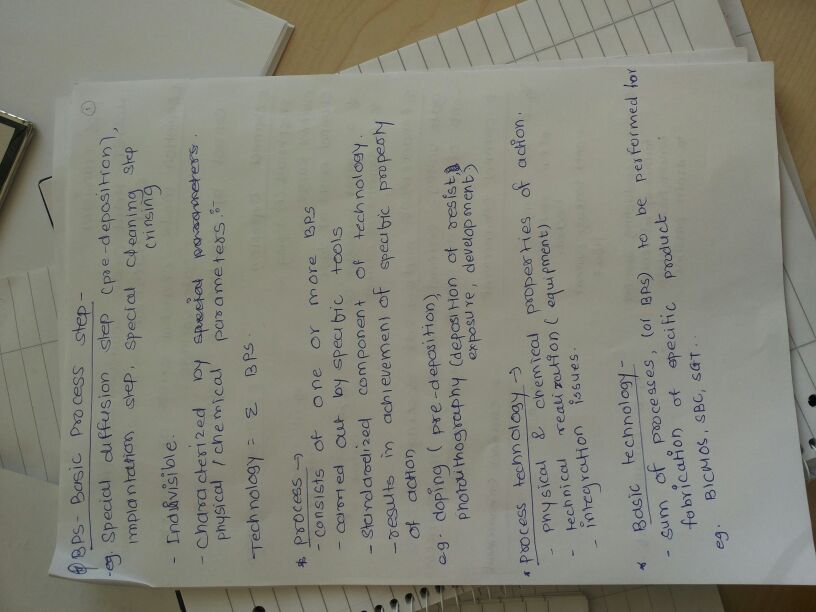 ①
BPS - Basic Process step -
- eg. Special diffusion step (pre-deposition),
implantation step, special cleaning step
(rinsing
- Indivisible.
- Characterized by special parameters.
physical / chemical parameters :-
Technology = Σ BPS.
* Process →
- consists of one or more BPS
- carried out by specific tools
- standardized component of technology.
- results in achievement of specific property
of action
eg. doping (pre-deposition),
photolithography (deposition of resist,
exposure, development)
* Process technology →
- physical & chemical properties of action.
- technical realization (equipment)
- integration issues.
* Basic technology -
- sum of processes, (of BPS) to be performed for
fabrication of specific product
eg. BICMOS, SBC, SGT...